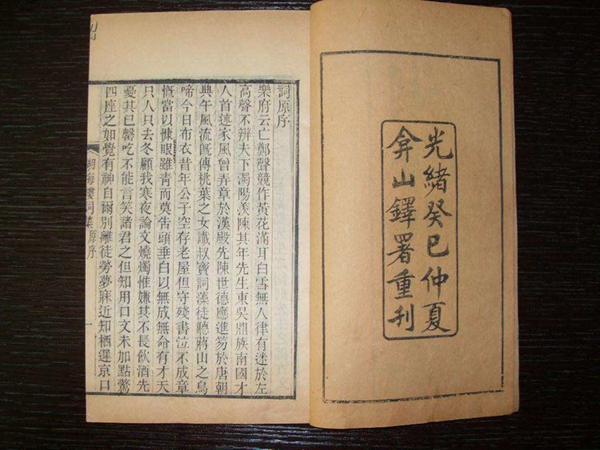 光緒癸巳仲夏
弇山鐸署重刊
詞原序
樂府云亡鄭聲競作黃花滿耳白雪無人律有迷於左
高聲不辨夫下濁陽羨陳其年先生東吳鼎族南國才
人首述家風曾弄章於漢殿先陳世德應進笏於唐朝
典午風流旣傳桃葉之女讖叔寶詞藻徒聽蔣山之鳥
啼今日布衣昔年公子空存老屋但守殘書泣不成章
慨當以慷眼雖靑而莫告頭垂白以無成無命有才天
只人只去冬顧我寒夜論文燒燭惟嫌其不長飲酒先
憂其已罄吃不能言笑諸君之但知用口文未加點驚
四座之如覺有神自爾別離徒勞夢寐近知栖遲京口
湖海樓詞集原序